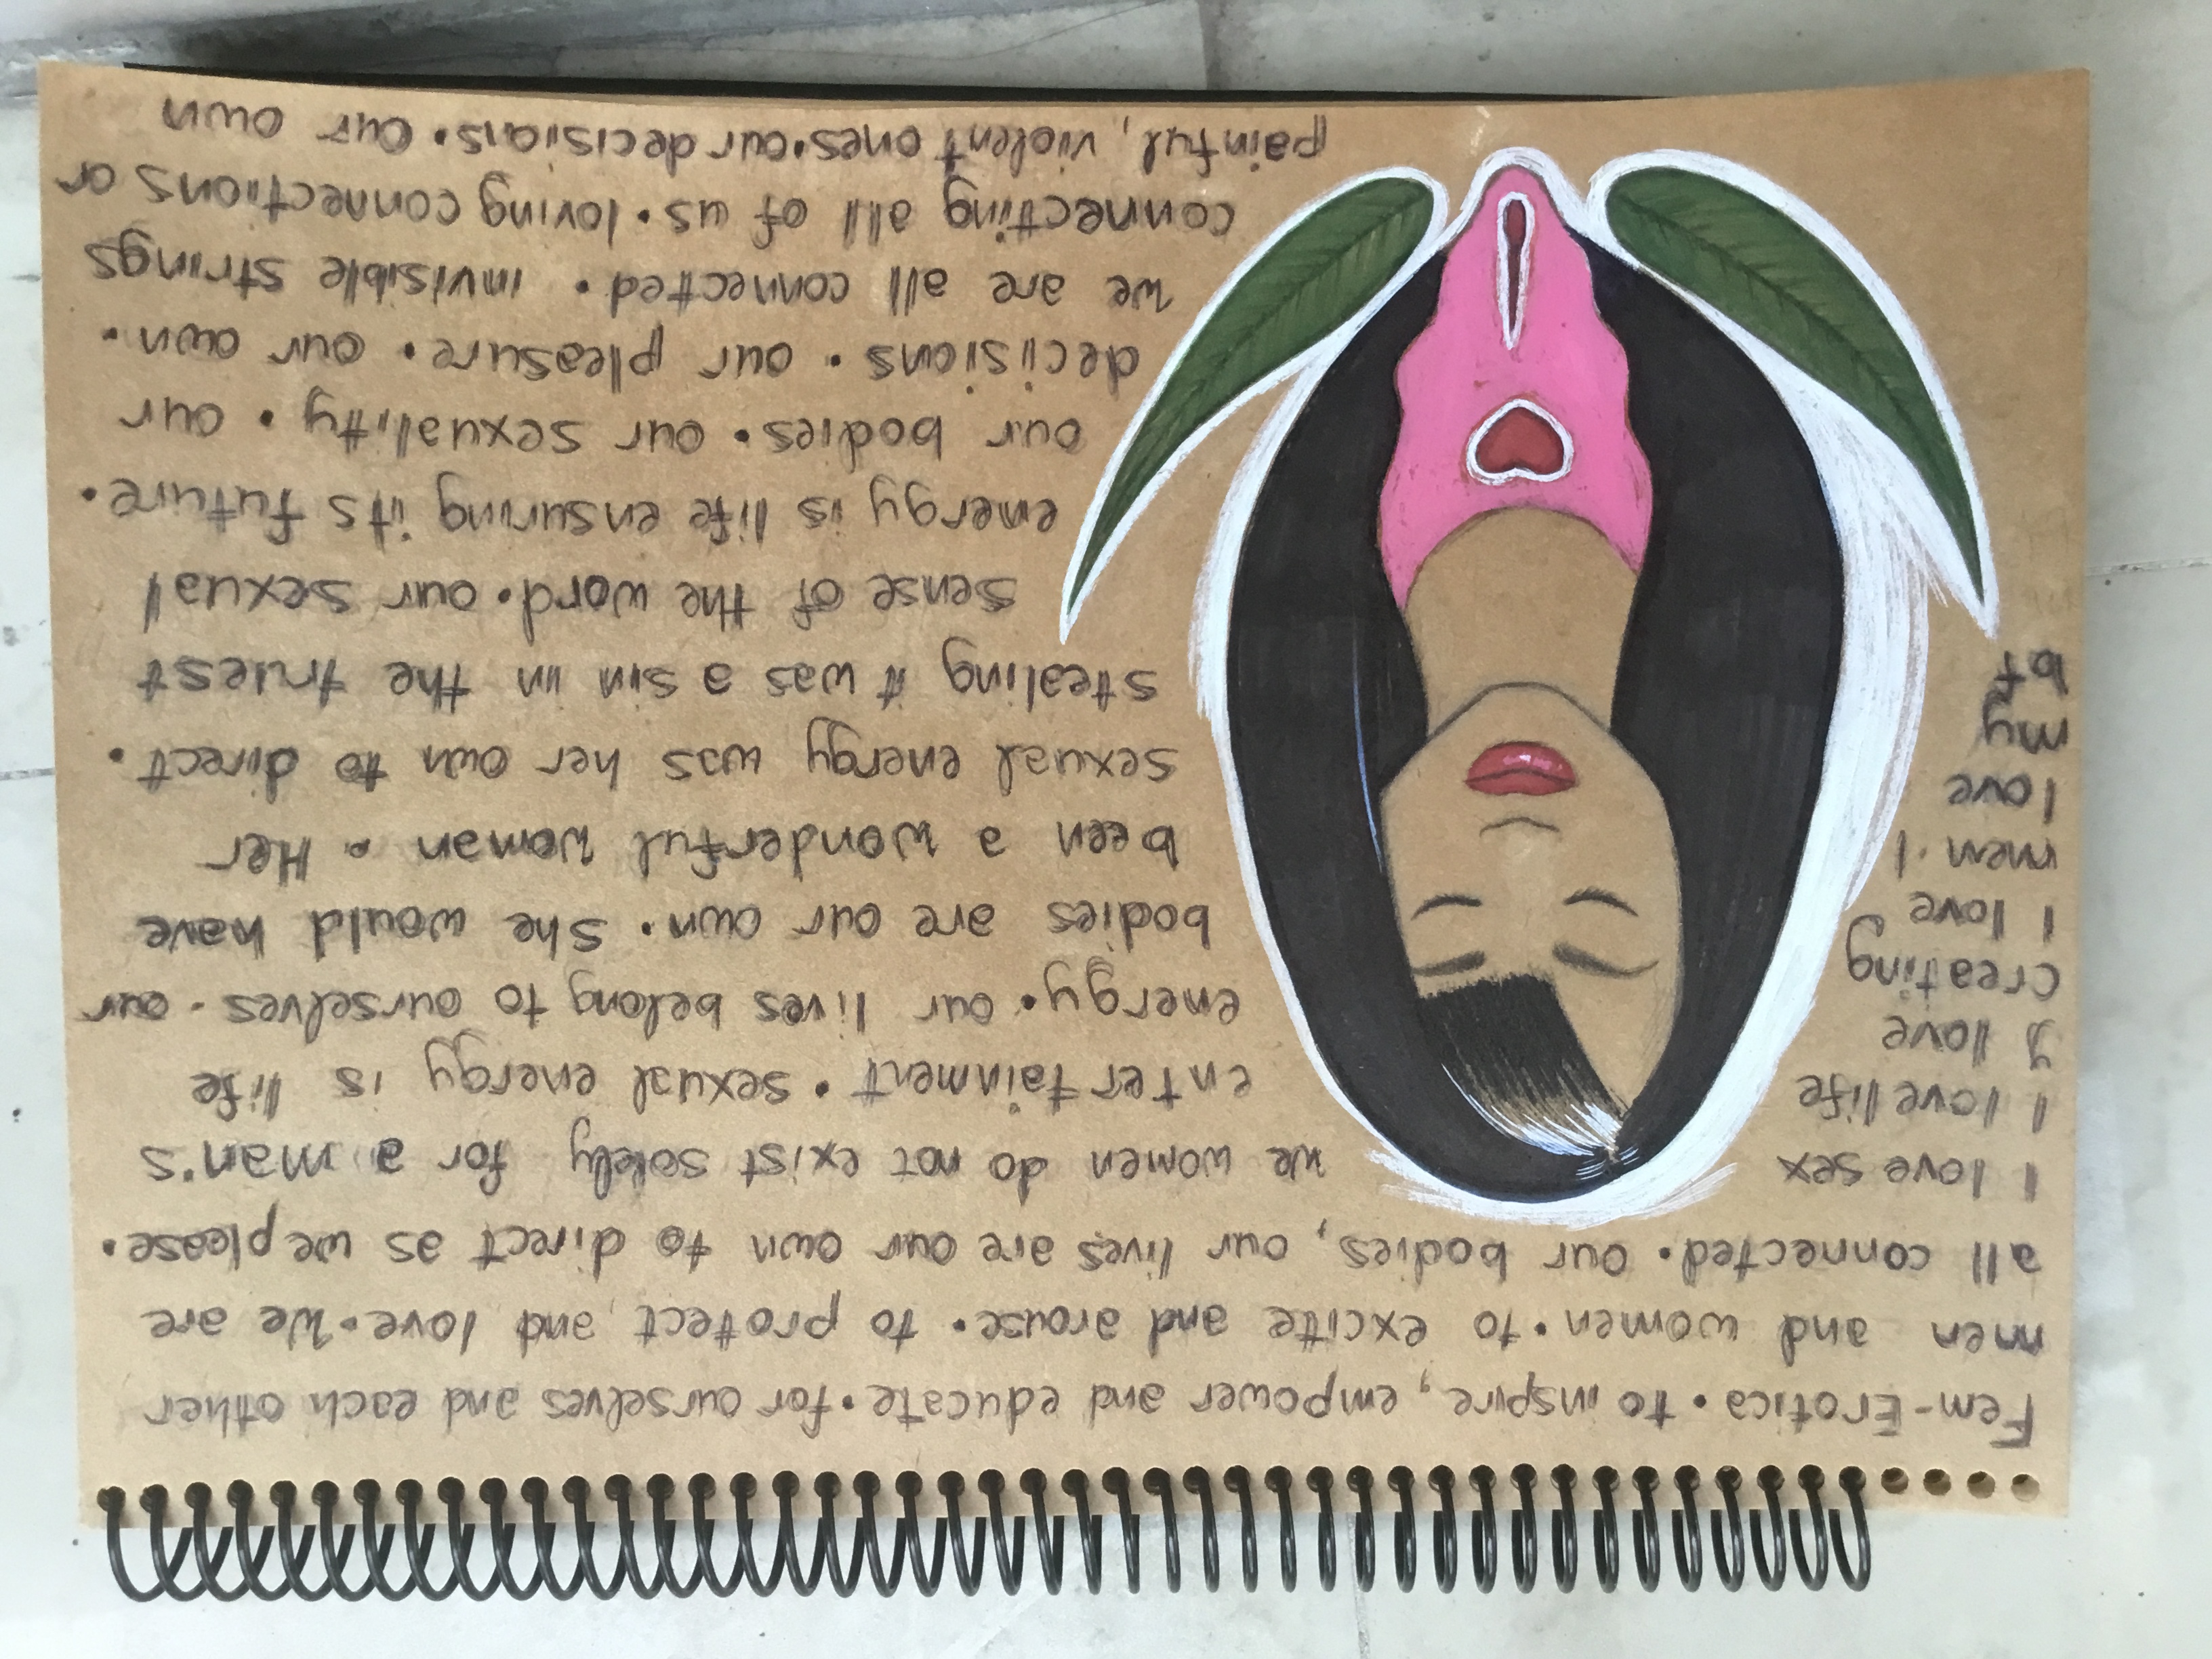 Fem-Erotica • to inspire, empower and educate • for ourselves and each other
men and women • to excite and arouse • to protect and love • We are
all connected • our bodies, our lives are our own to direct as we please •
I love sex
I love life
I love
creating
I love
men • I
love
my
bf
we women do not exist solely for a man's
entertainment • sexual energy is life
energy • our lives belong to ourselves • our
bodies are our own • She would have
been a wonderful woman • Her
sexual energy was her own to direct •
stealing it was a sin in the truest
sense of the word • our sexual
energy is life ensuring its future •
our bodies • our sexuality • our
decisions • our pleasure • our own •
we are all connected • invisible strings
connecting all of us • loving connections or
painful, violent ones • our decisions • our own